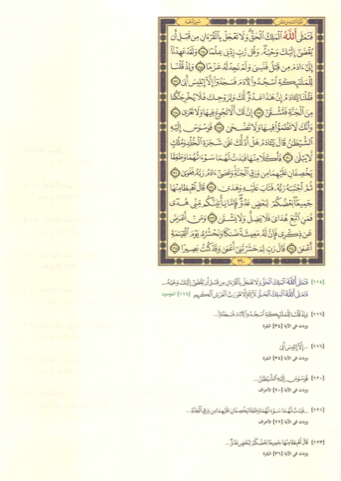 فَتَعَٰلَى ٱللَّهُ ٱلْمَلِكُ ٱلْحَقُّ وَلَا تَعْجَلْ بِٱلْقُرْءَانِ مِن قَبْلِ أَن
يُقْضَىٰٓ إِلَيْكَ وَحْيُهُۥ وَقُل رَّبِّ زِدْنِى عِلْمًا ۝ وَلَقَدْ عَهِدْنَآ
إِلَىٰٓ ءَادَمَ مِن قَبْلُ فَنَسِىَ وَلَمْ نَجِدْ لَهُۥ عَزْمًا ۝ وَإِذْ قُلْنَا
لِلْمَلَٰٓئِكَةِ ٱسْجُدُوا۟ لِءَادَمَ فَسَجَدُوٓا۟ إِلَّآ إِبْلِيسَ أَبَىٰ ۝
فَقُلْنَا يَٰٓـَٔادَمُ إِنَّ هَٰذَا عَدُوٌّ لَّكَ وَلِزَوْجِكَ فَلَا يُخْرِجَنَّكُمَا
مِنَ ٱلْجَنَّةِ فَتَشْقَىٰٓ ۝ إِنَّ لَكَ أَلَّا تَجُوعَ فِيهَا وَلَا تَعْرَىٰ ۝
وَأَنَّكَ لَا تَظْمَؤُا۟ فِيهَا وَلَا تَضْحَىٰ ۝ فَوَسْوَسَ إِلَيْهِ
ٱلشَّيْطَٰنُ قَالَ يَٰٓـَٔادَمُ هَلْ أَدُلُّكَ عَلَىٰ شَجَرَةِ ٱلْخُلْدِ وَمُلْكٍ
لَّا يَبْلَىٰ ۝ فَأَكَلَا مِنْهَا فَبَدَتْ لَهُمَا سَوْءَٰتُهُمَا وَطَفِقَا
يَخْصِفَانِ عَلَيْهِمَا مِن وَرَقِ ٱلْجَنَّةِ وَعَصَىٰٓ ءَادَمُ رَبَّهُۥ فَغَوَىٰ ۝
ثُمَّ ٱجْتَبَٰهُ رَبُّهُۥ فَتَابَ عَلَيْهِ وَهَدَىٰ ۝ قَالَ ٱهْبِطَا مِنْهَا
جَمِيعًۢا بَعْضُكُمْ لِبَعْضٍ عَدُوٌّ فَإِمَّا يَأْتِيَنَّكُم مِّنِّى هُدًى
فَمَنِ ٱتَّبَعَ هُدَاىَ فَلَا يَضِلُّ وَلَا يَشْقَىٰ ۝ وَمَنْ أَعْرَضَ
عَن ذِكْرِى فَإِنَّ لَهُۥ مَعِيشَةً ضَنكًا وَنَحْشُرُهُۥ يَوْمَ ٱلْقِيَٰمَةِ
أَعْمَىٰ ۝ قَالَ رَبِّ لِمَ حَشَرْتَنِىٓ أَعْمَىٰ وَقَدْ كُنتُ بَصِيرًا ۝
[١١٤] فَتَعَٰلَى ٱللَّهُ ٱلْمَلِكُ ٱلْحَقُّ وَلَا تَعْجَلْ بِٱلْقُرْءَانِ مِن قَبْلِ أَن يُقْضَىٰٓ إِلَيْكَ وَحْيُهُۥ...
فَتَعَٰلَى ٱللَّهُ ٱلْمَلِكُ ٱلْحَقُّ لَآ إِلَٰهَ إِلَّا هُوَ رَبُّ ٱلْعَرْشِ ٱلْكَرِيمِ [١١٦] المؤمنون
[١١٦] وَإِذْ قُلْنَا لِلْمَلَٰٓئِكَةِ ٱسْجُدُوا۟ لِءَادَمَ فَسَجَدُوٓا۟...
وردت في الآية [٣٤] البقرة
[١١٦] ...إِلَّآ إِبْلِيسَ أَبَىٰ
وردت في الآية [٣٤] البقرة
[١٢٠] فَوَسْوَسَ إِلَيْهِ ٱلشَّيْطَٰنُ...
وردت في الآية [٢٠] الأعراف
[١٢١] ...فَبَدَتْ لَهُمَا سَوْءَٰتُهُمَا وَطَفِقَا يَخْصِفَانِ عَلَيْهِمَا مِن وَرَقِ ٱلْجَنَّةِ...
وردت في الآية [٢٢] الأعراف
[١٢٣] قَالَ ٱهْبِطَا مِنْهَا جَمِيعًۢا بَعْضُكُمْ لِبَعْضٍ عَدُوٌّ...
وردت في الآية [٣٦] البقرة